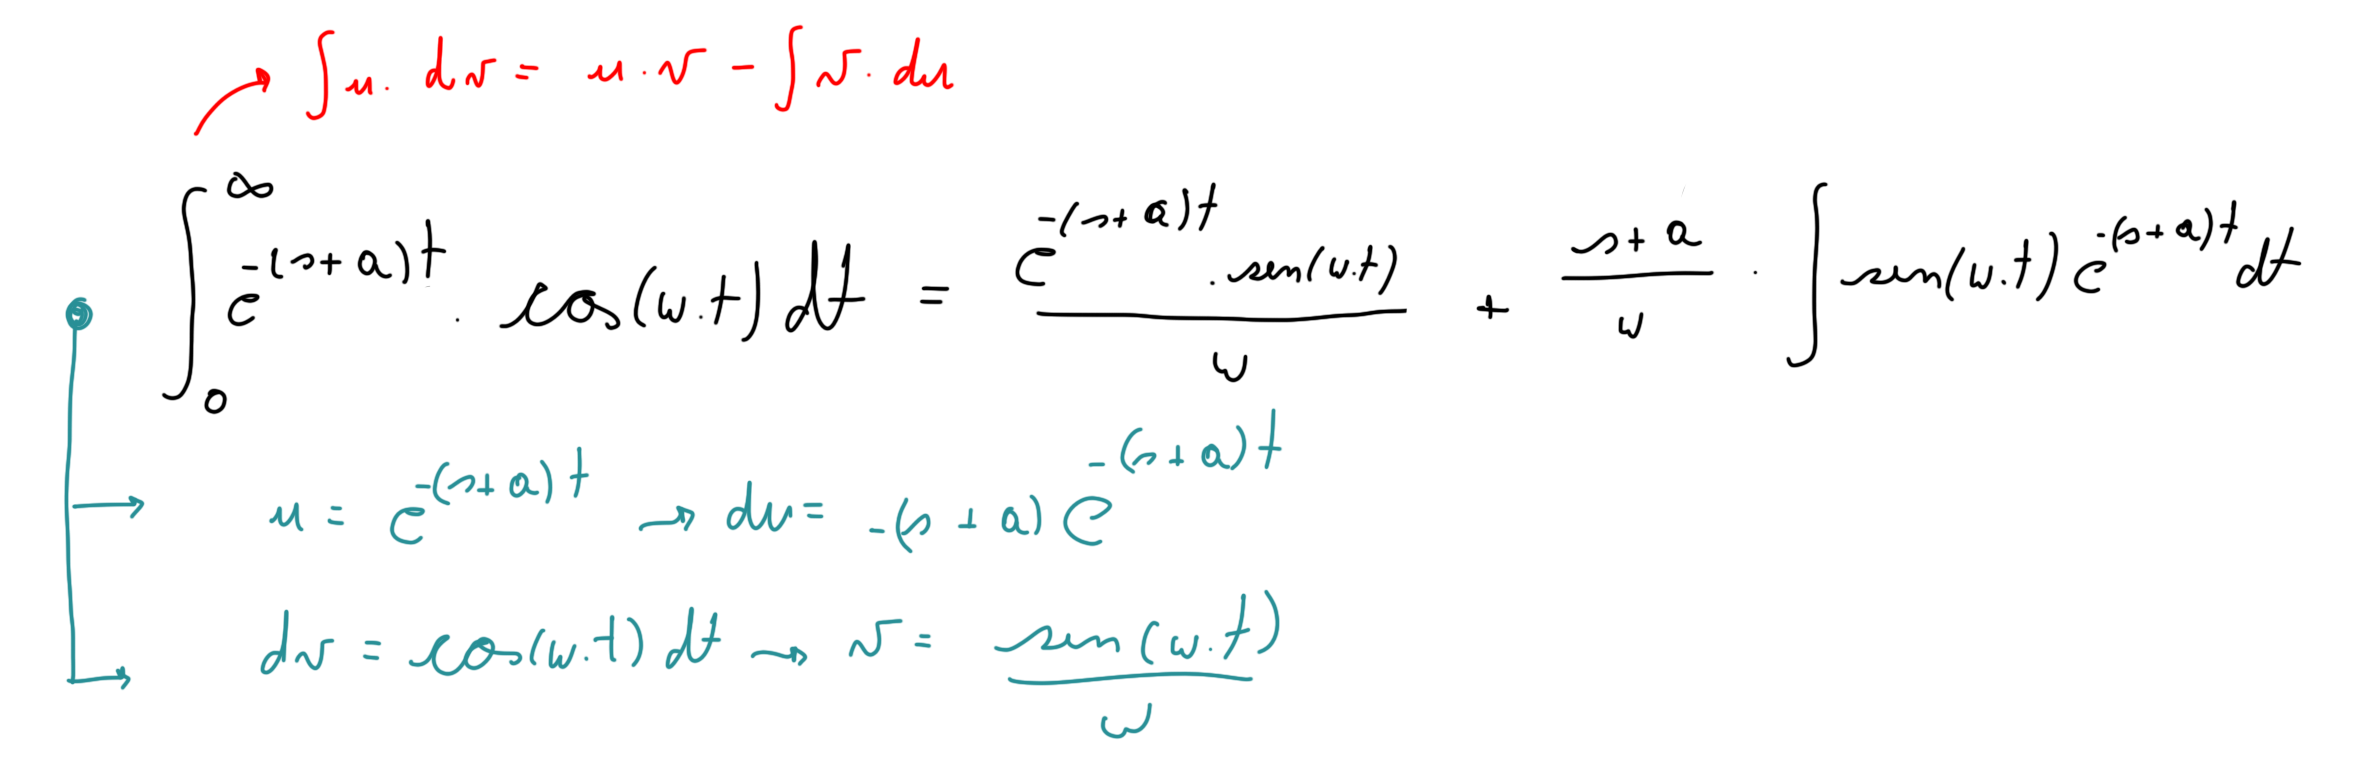 ∫ u. dv = u . v - ∫ v. du
∫₀^∞ e^{-(s+a)t} . cos(w.t) dt = \frac{e^{-(s+a)t} . sen(w.t)}{w} + \frac{s+a}{w} . ∫ sen(w.t) e^{-(s+a)t} dt
u = e^{-(s+a)t} → du = -(s+a) e^{-(s+a)t}
dv = cos(w.t) dt → v = \frac{sen(w.t)}{w}